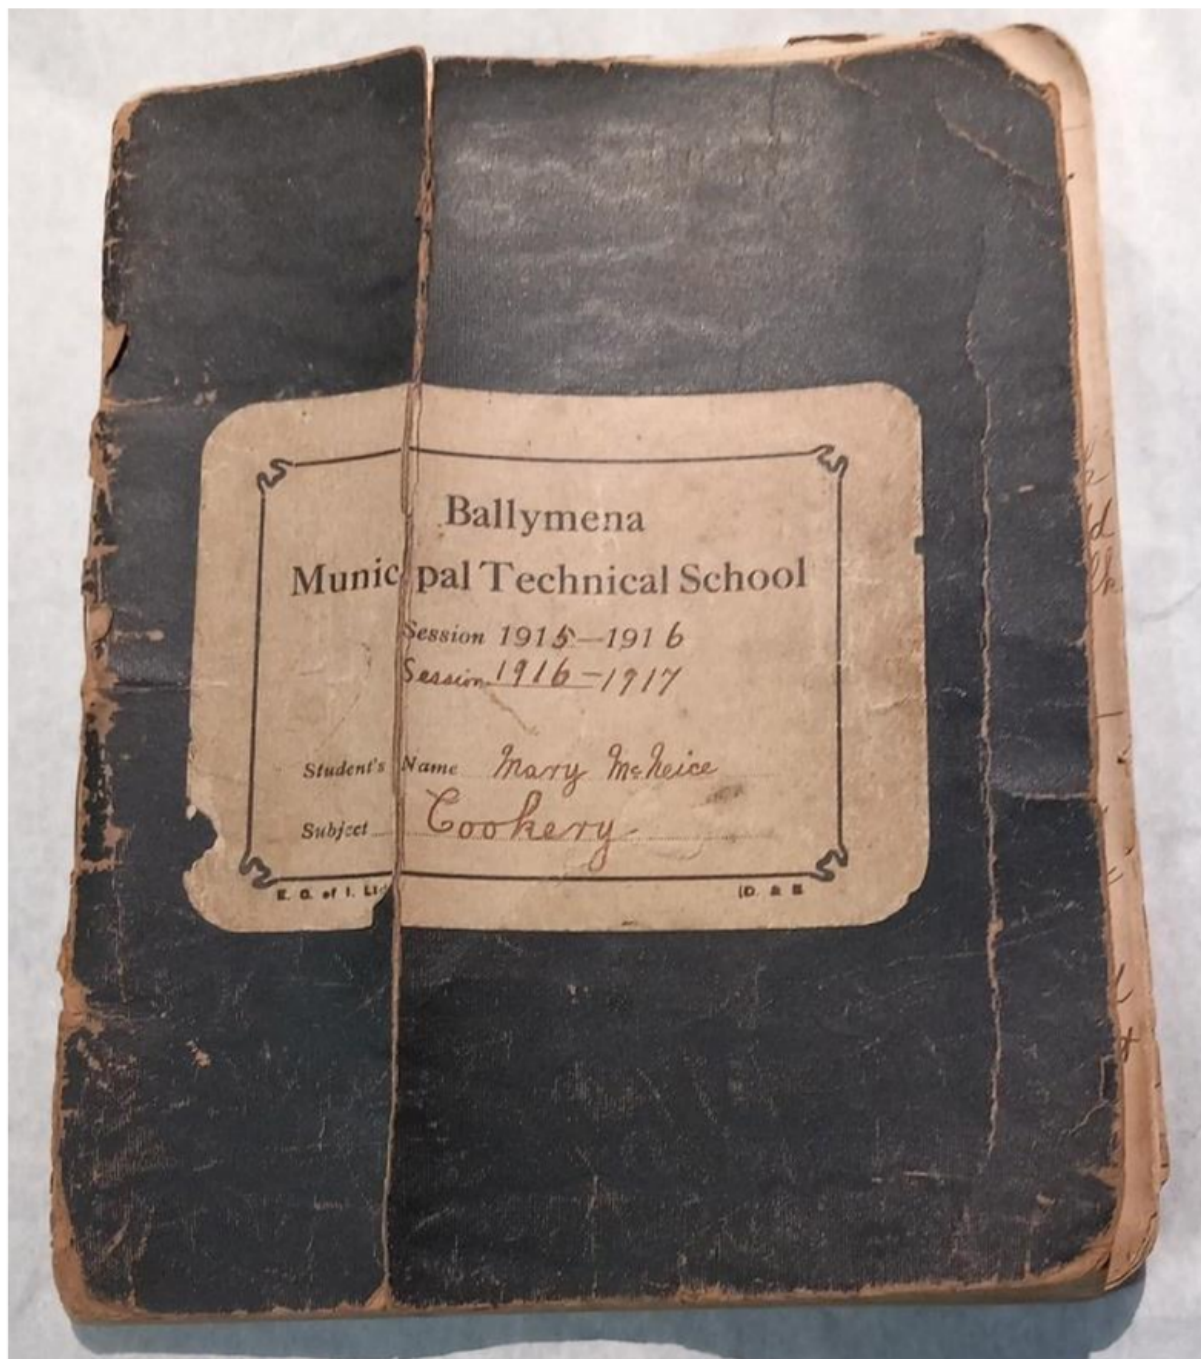 Ballymena
Municipal Technical School
Session 1915—1916
Session 1916—1917
Student's Name Mary McNeice
Subject Cookery
E. G. of I. Ltd
(D. & B